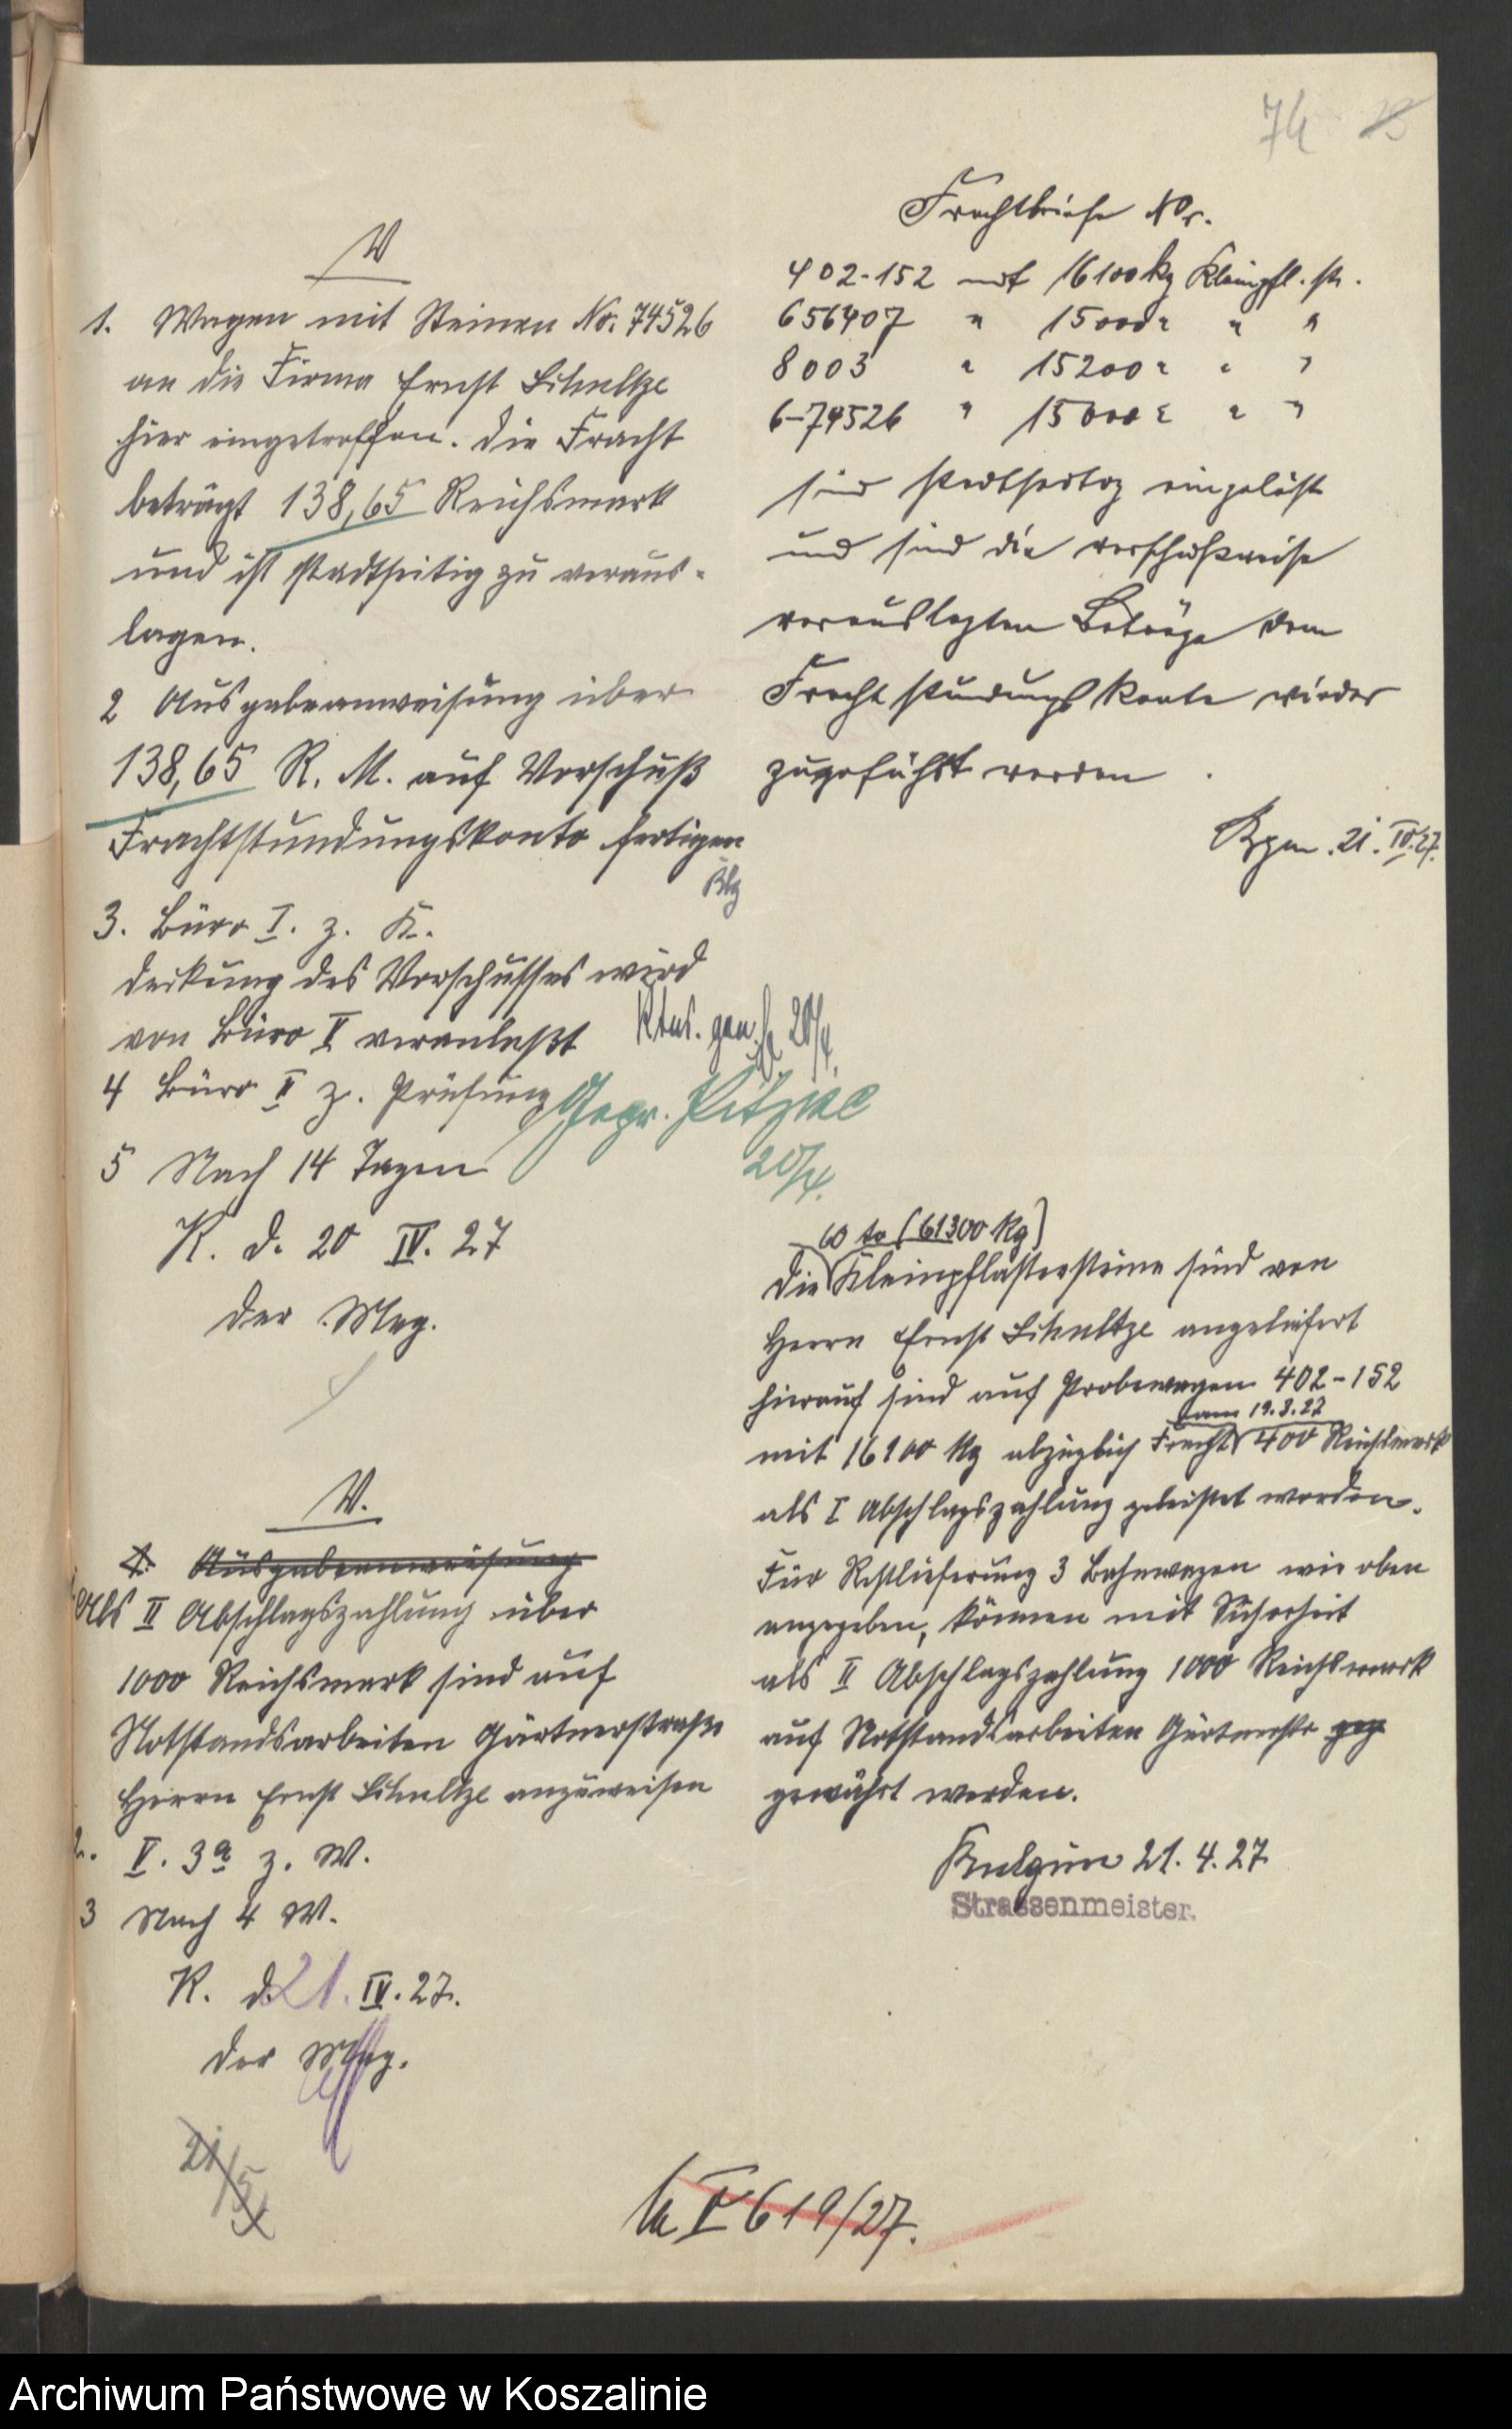 74
V
1. Wagen mit Steinen No: 74526
an die Firma Ernst Schultze
hier eingetroffen. Die Fracht
beträgt 138,65 Reichsmark
und ist stadtseitig zu veraus-
lagen.
2 Ausgabeanweisung über
138,65 R. M. auf Vorschuß
Frachtstundungskonto fertigen
3. Büro I. z. K.
Deckung des Vorschusses wird
von Büro V veranlaßt
4 Büro II z. Prüfung
Gepr.
20/4.
5 Nach 14 Tagen
K. d. 20 IV. 27
Der Mag.
V.
1. Ausgabeanweisung
Als II Abschlagszahlung über
1000 Reichsmark sind auf
Notstandsarbeiten Gärtnerstraße
Herrn Ernst Schultze anzuweisen
2. V. 3a z. W.
3 Nach 4 W.
K. d. 21. IV. 27.
Der Mag.
21/5
Frachtbriefe Nr.
402-152 mit 16100 kg Kleinpfl. st.
656407 " 15000 " " "
8003 " 15200 " " "
6-74526 " 15000 " " "
sind eingelöst
und sind die vorschußweise
verauslagten Beträge dem
Frachtstundungskonto wieder
zugeführt worden.
21. IV. 27.
60 to (61300 kg)
Die Kleinpflastersteine sind von
Herrn Ernst Schultze angeliefert
hierauf sind auf Probewagen 402-152
am 19.3.27
mit 16100 kg abzüglich Fracht 400 Reichsmark
als I Abschlagszahlung geleistet worden.
Für Restlieferung 3 Bahnwagen wie oben
angegeben, können mit Sicherheit
als II Abschlagszahlung 1000 Reichsmark
auf Notstandsarbeiten Gärtnerstr geg
gewährt werden.
21. 4. 27
Strassenmeister.
V 619/27.
Archiwum Państwowe w Koszalinie